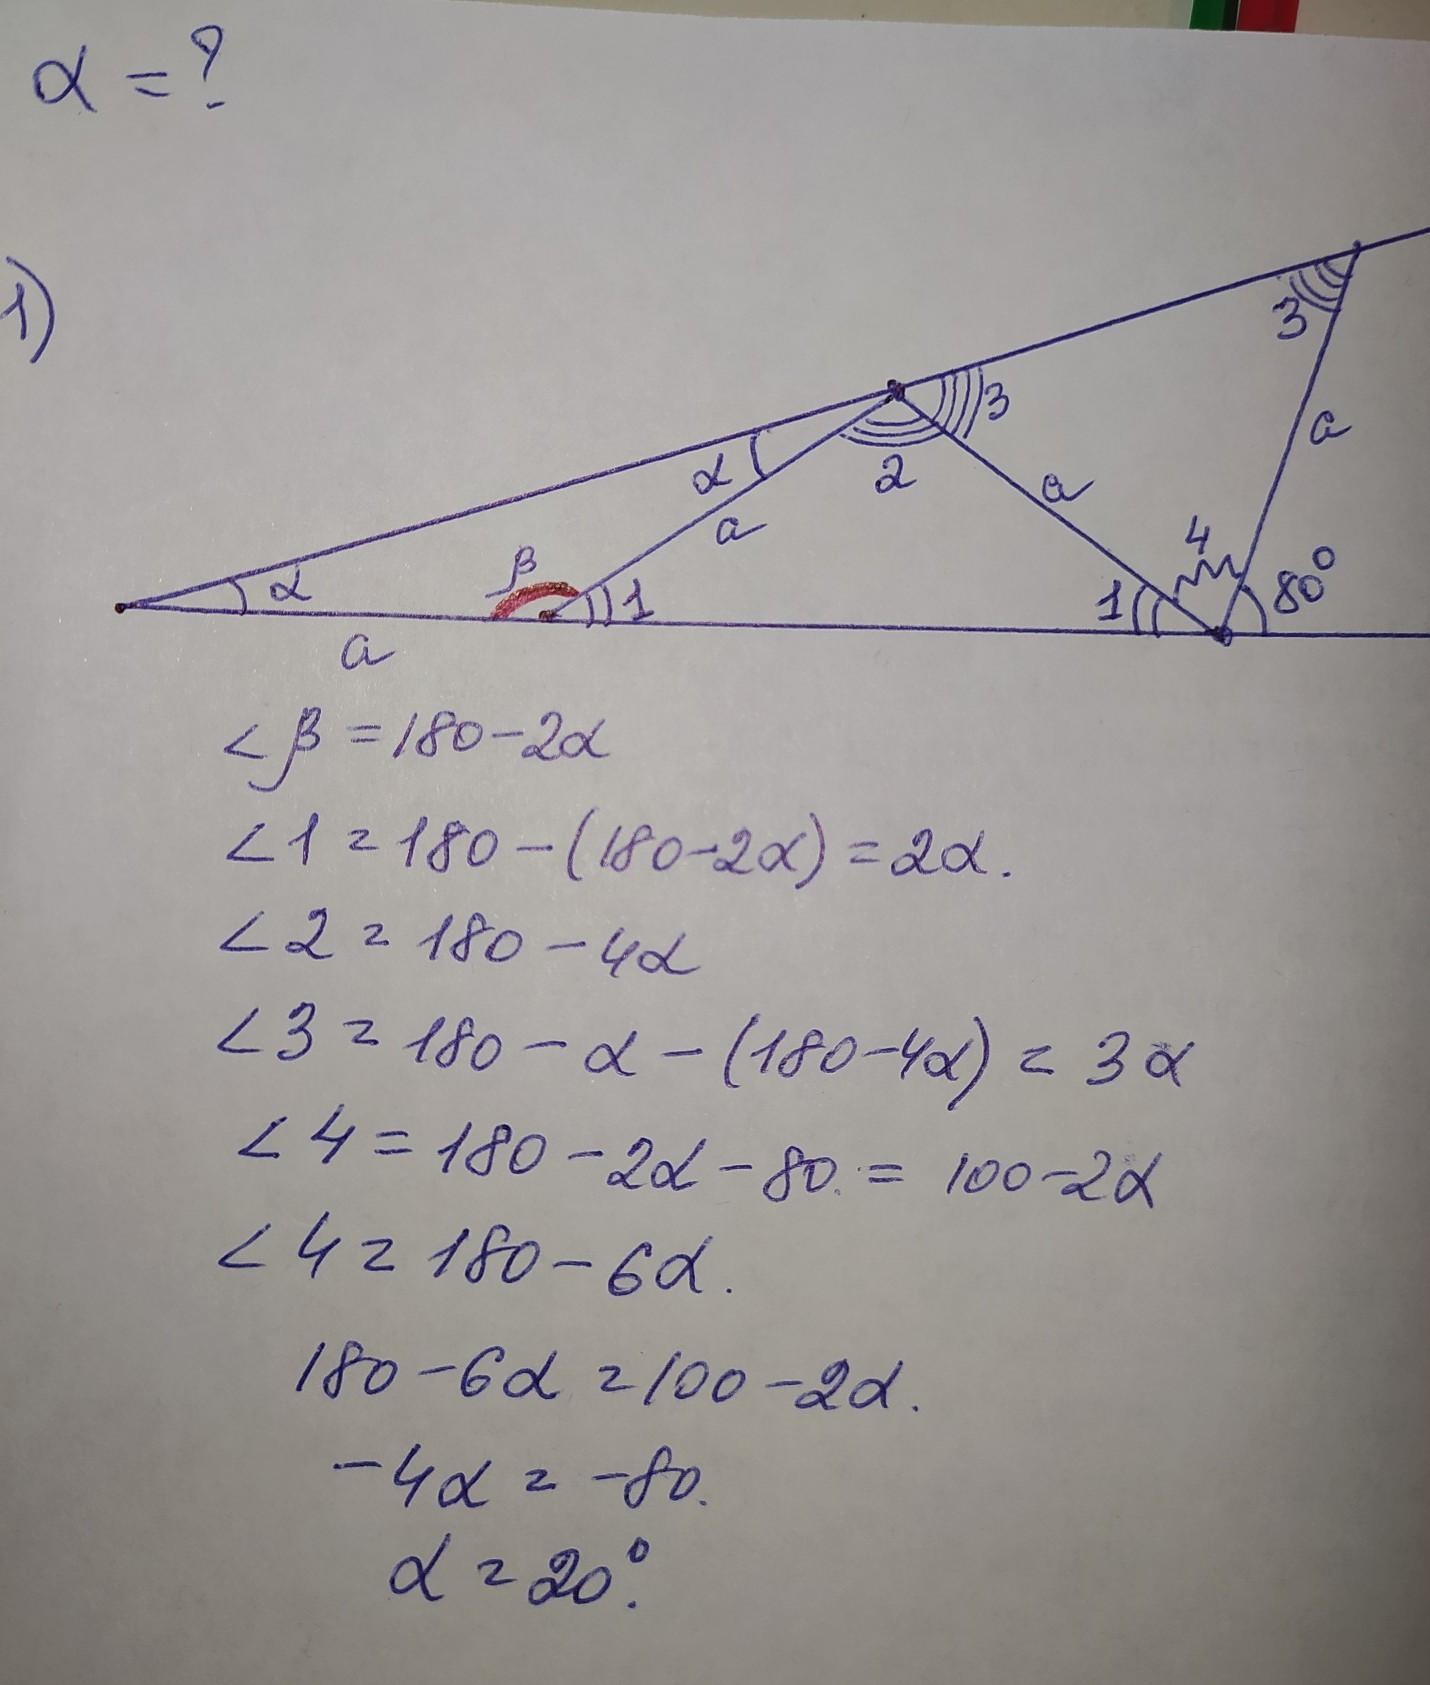 α = ?
1)
3
3
a
α
2
a
a
4
β
α
1
1
80°
a
<β = 180 - 2α
<1 = 180 - (180 - 2α) = 2α.
<2 = 180 - 4α
<3 = 180 - α - (180 - 4α) = 3α
<4 = 180 - 2α - 80. = 100 - 2α
<4 = 180 - 6α.
180 - 6α = 100 - 2α.
-4α = -80.
α = 20°.